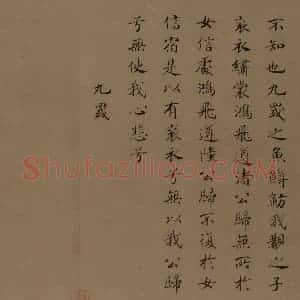 不知也九罭之魚鱒魴我覯之子
袞衣繡裳鴻飛遵渚公歸無所於
女信處鴻飛遵陸公歸不復於女
信宿是以有袞衣兮無以我公歸
兮無使我心悲兮
九罭
Shufaziliao.com